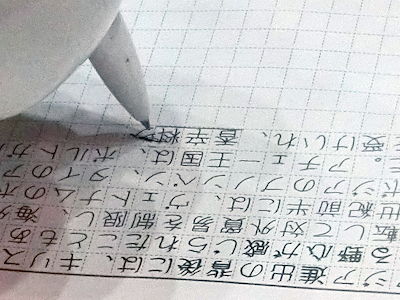 ジア進出の背後には、キリス
る野心が感じられたこともあ
転して対外貿易を制限し、海
世紀前半には、ヴェトナムのホ
ボジアのプノンペン、タイのア
。アチェー王国は、ポルトガ
を受けいれ、香辛料